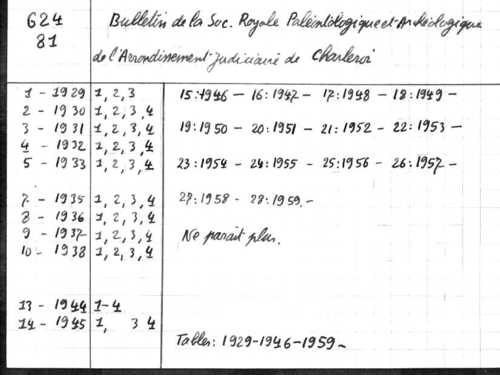 624 Bulletin de la Soc. Royale Paléontologique et Archéologique
81 de l'Arrondissement judiciaire de Charleroi
1 - 1929 1, 2, 3 15:1946 - 16:1947 - 17:1948 - 18:1949 -
2 - 1930 1, 2, 3, 4
3 - 1931 1, 2, 3, 4 19:1950 - 20:1951 - 21:1952 - 22:1953 -
4 - 1932 1, 2, 3, 4
5 - 1933 1, 2, 3, 4 23:1954 - 24:1955 - 25:1956 - 26:1957 -
7 - 1935 1, 2, 3, 4 27:1958 - 28:1959. -
8 - 1936 1, 2, 3, 4
9 - 1937 1, 2, 3, 4 Ne parait plus.
10 - 1938 1, 2, 3, 4
13 - 1944 1-4
14 - 1945 1, 3 4
Tables: 1929-1946-1959 -